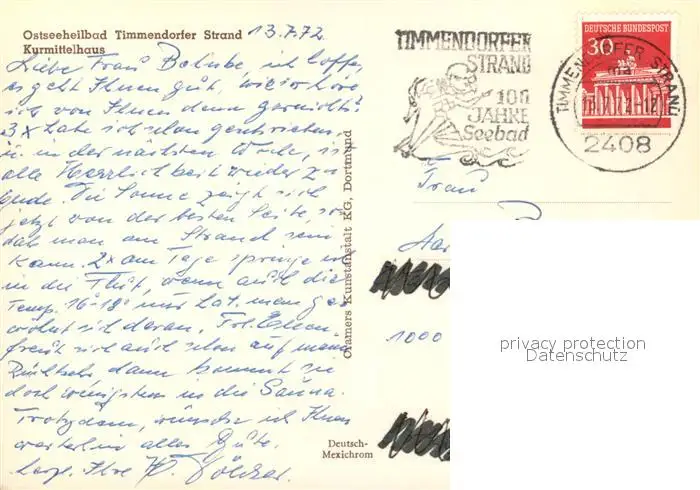 Ostseeheilbad Timmendorfer Strand 13.7.72
Kurmittelhaus
Liebe Frau Behnke, ich hoffe,
es geht Ihnen gut, wieso höre
ich von Ihnen denn garnichts?
3x habe ich schon geschrieben,
in der nächsten Woche, is
alle Herrlichkeit wieder zu
Ende. Die Sonne zeigt sich
jetzt von der besten Seite, so
daß man am Strand sein
kann. 2x am Tage springe ich
in die Flut, wenn auch die
Temp. 16°-18° nur hat. man ge
wöhnt sich daran. Frl.
freut sich auch schon auf meine
Rückkehr dann kommt sie
doch wenigstens in die Sauna.
Trotzdem, wünsche ich Ihnen
weiterhin alles Gute.
herzl. Ihre
Cramers Kunstanstalt KG, Dortmund
Deutsch-
Mexichrom
TIMMENDORFER
STRAND
100
JAHRE
Seebad
DEUTSCHE BUNDESPOST
30
TIMMENDORFER STRAND
2408
Frau
1000
privacy protection
Datenschutz